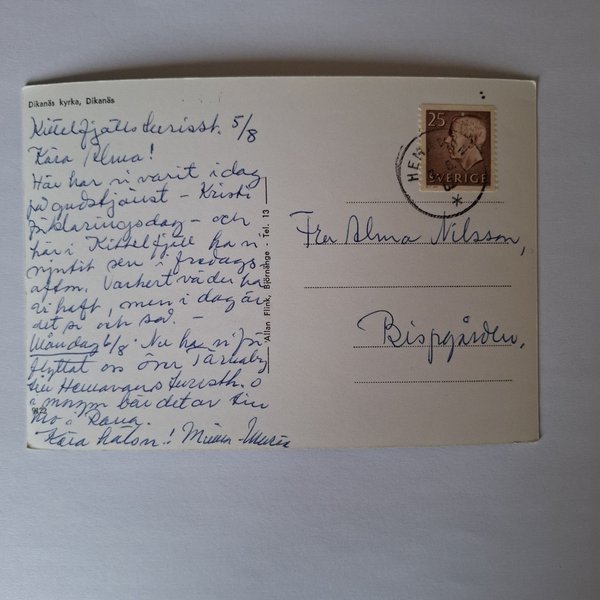 Dikanäs kyrka, Dikanäs
Kittelfjälls turistst. 5/8
Kära Alma!
Här har vi varit i dag
på gudstjänst - Kristi
förklaringsdag - och
här i Kittelfjäll ha vi
njutit sen i fredags
afton. Vackert väder ha
vi haft, men i dag är
det si och så. -
Måndag 6/8. Nu har vi
flyttat oss över Tärnaby
till Hemavans turisth. o
i morgon bär det av till
Mo i Rana.
Kära hälsn.!
Allan Flink, Björnänge - Tel. 13
25
SVERIGE
HEM
Fru Alma Nilsson,
Bispgården,